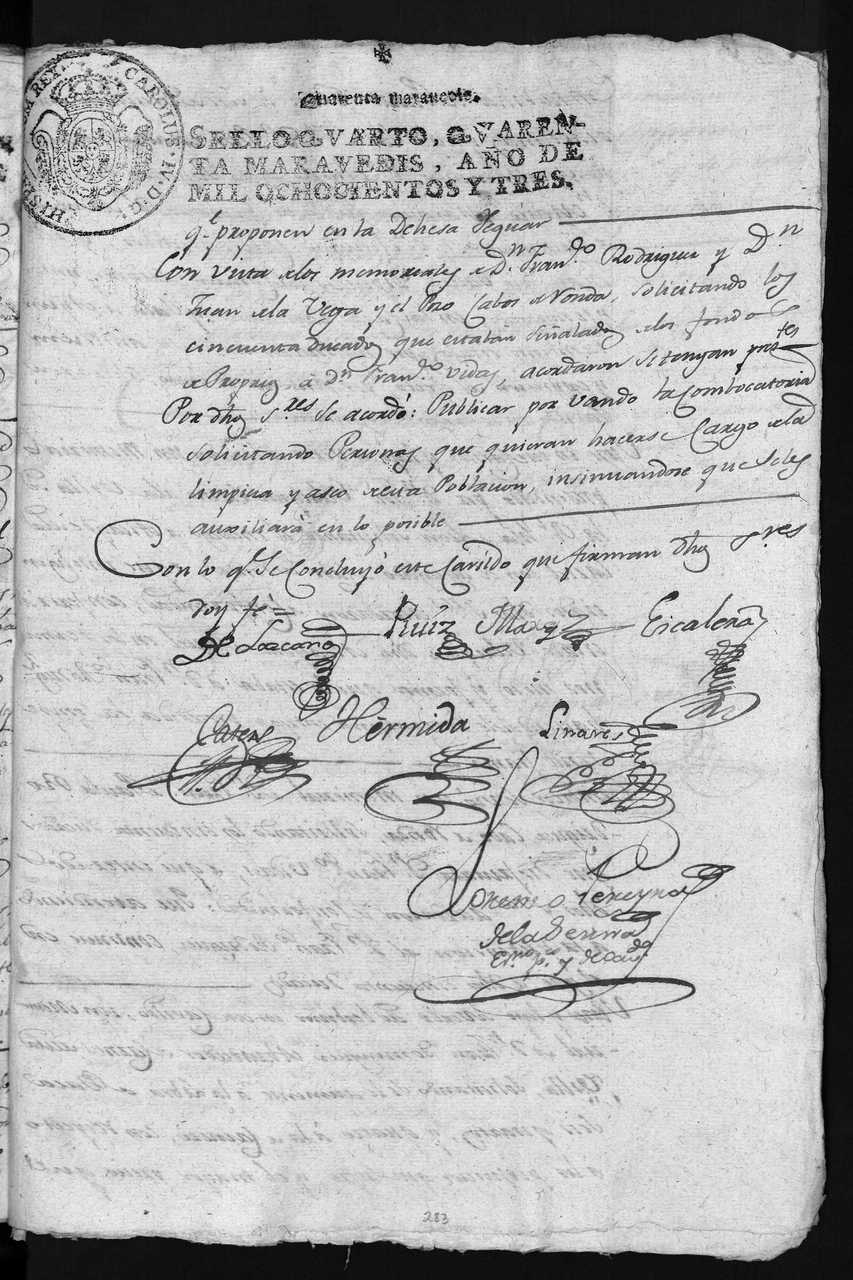 HISPANIARUM REX CAROLUS IV D G
Quarenta maravedis.
SELLO QVARTO, QVAREN-
TA MARAVEDIS, AÑO DE
MIL OCHOCIENTOS Y TRES.
q.e proponen en la Dehesa Yeguar
Con vista de los memoriales de D.n Fran.co Rodriguez y D.n
Juan de la Vega y el Pro Cabos de Ronda, solicitando los
cincuenta ducados que estaban señalados de los fondos
de Propios, a d.n Fran.co Vidas, acordaron se tengan pres.tes
Por dhos s.res se acordó: Publicar por vando la Combocatoria
solicitando Personas que quieran hacerse Cargo de la
limpieza y aseo de esta Poblacion, insinuandose que se les
auxiliará en lo posible
Con lo q.e se Concluyó este Cavildo que firman dhos s.res
doy fé =
De Lazcano Ruiz Escalera
Hermida Linares
Lorenzo Pereyra
de la Serna
Es.no p.co y de Cav.do
283